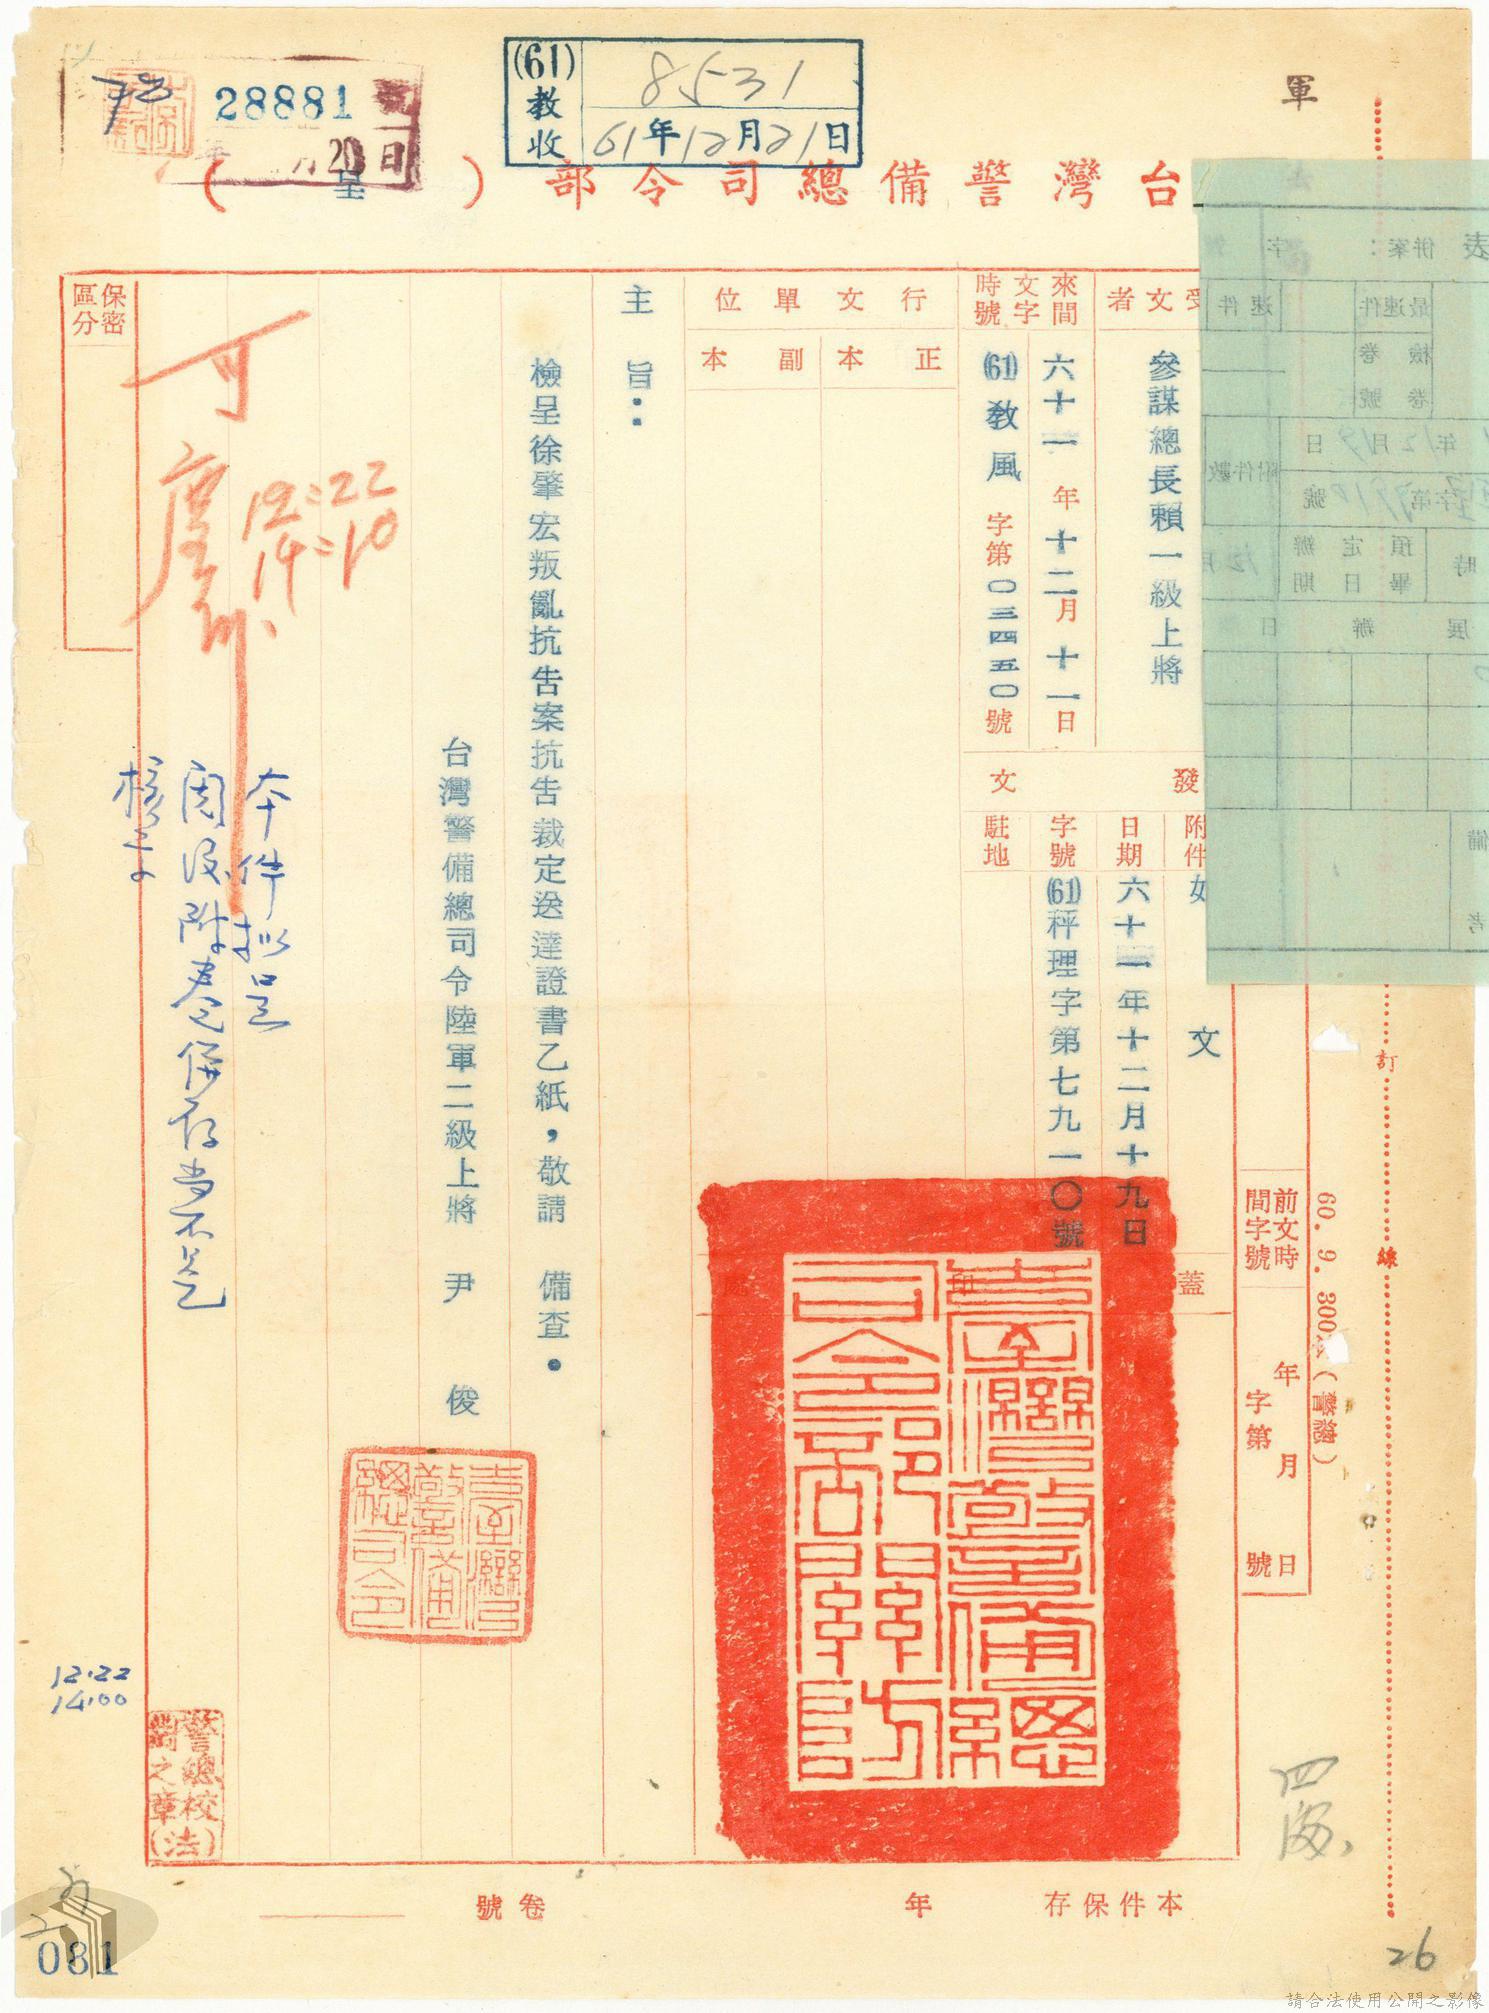 軍
28881 號
20日
(61)教收
8531
61年12月21日
台灣警備總司令部（呈）
保密區分
受文者
參謀總長賴一級上將
來文時間字號
六十一年十二月十一日
(61)教風字第〇三四五〇號
行文單位
正本
副本
發文
附件
如文
日期
六十一年十二月十九日
字號
(61)秤理字第七九一〇號
駐地
蓋印處
主旨：
檢呈徐肇宏叛亂抗告案抗告裁定送達證書乙紙，敬請備查。
台灣警備總司令陸軍二級上將 尹俊
臺灣警備總司令部關防
臺灣警備總司令
可
12:22
14:10
本件擬呈
閱後附卷併存當否乞
核示
12.22
14.00
警總校對之章(法)
前文時間字號
年月日
字第號
60. 9. 300本
訂
線
表
併案：
字
最速件
速件
檢卷
卷號
年12月19日
附件數
字第7910號
時
預定辦畢日期
12月
展辦
日
備考
本件保存 年
卷號
081
26
請合法使用公開之影像